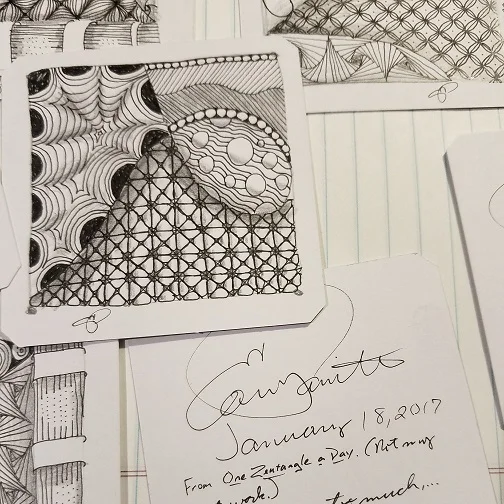 January 18, 2017
From One Zentangle a Day. (Not my
work.)
much,...